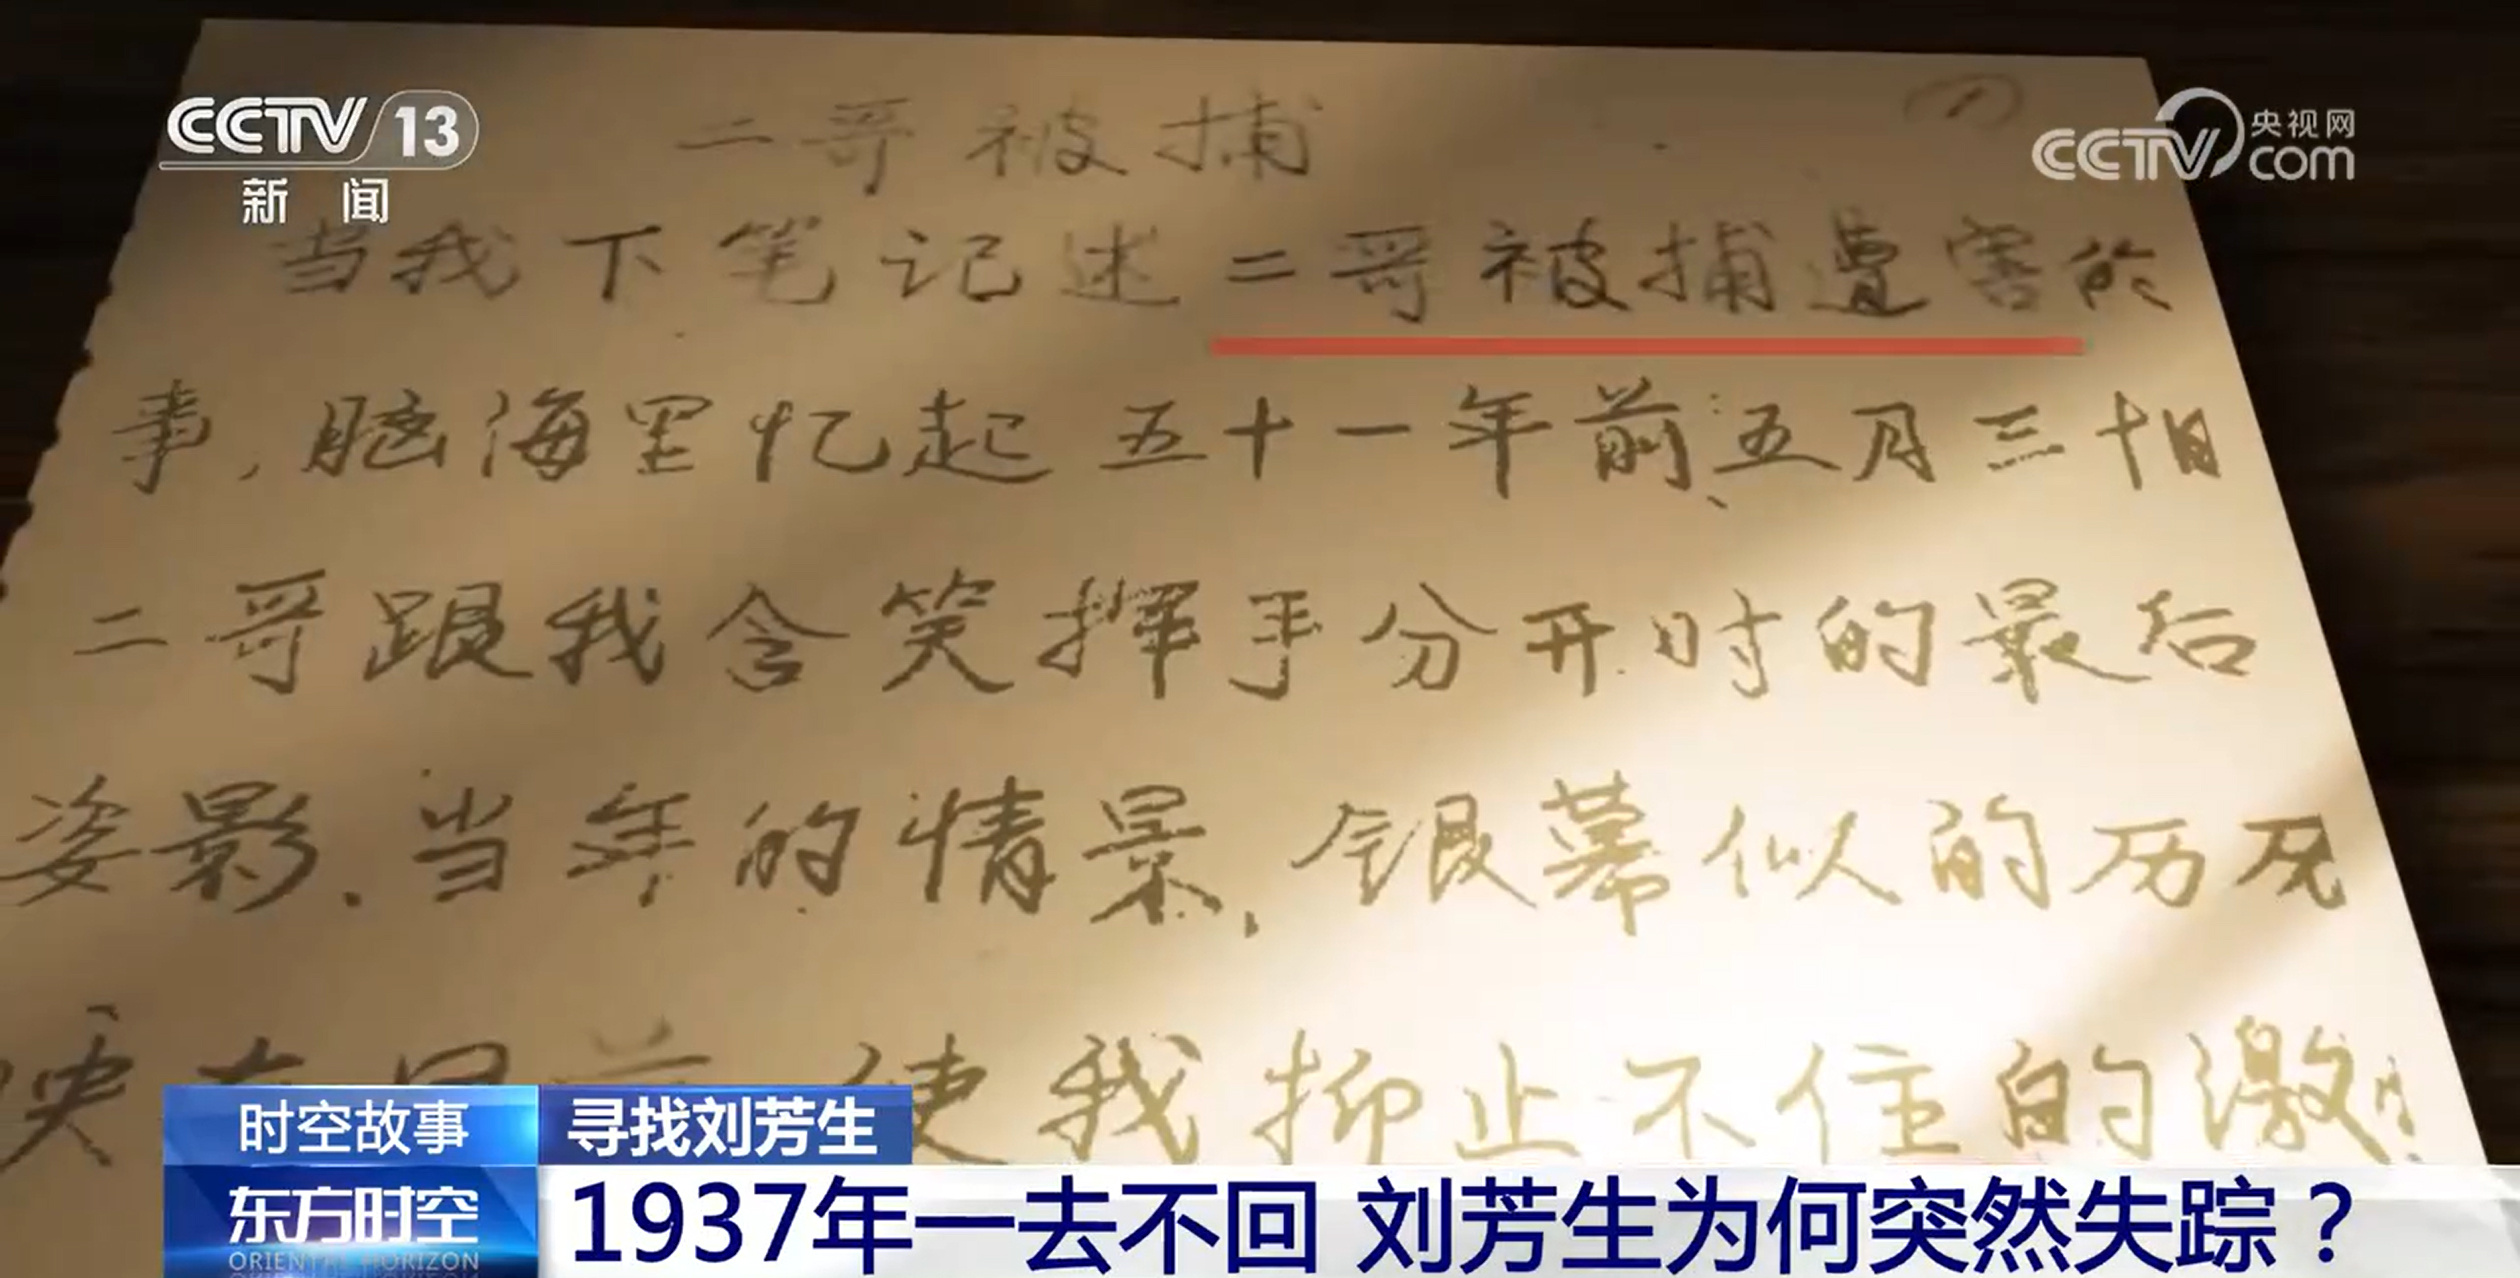 CCTV 13
新闻
央视网
CCTV com
二哥被捕
当我下笔记述二哥被捕遭害的
事,脑海里忆起五十一年前五月三十日
二哥跟我含笑挥手分开时的最后
姿影.当年的情景,银幕似的历历
映在目前 使我抑止不住的激
时空故事
寻找刘芳生
东方时空
ORIENTAL HORIZON
1937年一去不回 刘芳生为何突然失踪?